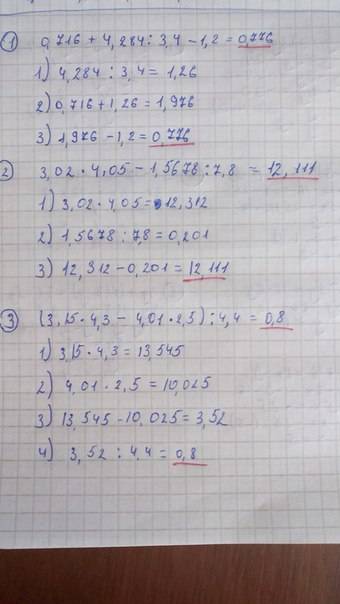 1 0,716 + 4,284 : 3,4 - 1,2 = 0,776
1) 4,284 : 3,4 = 1,26
2) 0,716 + 1,26 = 1,976
3) 1,976 - 1,2 = 0,776
2 3,02 · 4,05 - 1,5678 : 7,8 = 12,111
1) 3,02 · 4,05 = 12,312
2) 1,5678 : 7,8 = 0,201
3) 12,312 - 0,201 = 12,111
3 (3,15 · 4,3 - 4,01 · 2,5) : 4,4 = 0,8
1) 3,15 · 4,3 = 13,545
2) 4,01 · 2,5 = 10,025
3) 13,545 - 10,025 = 3,52
4) 3,52 : 4,4 = 0,8